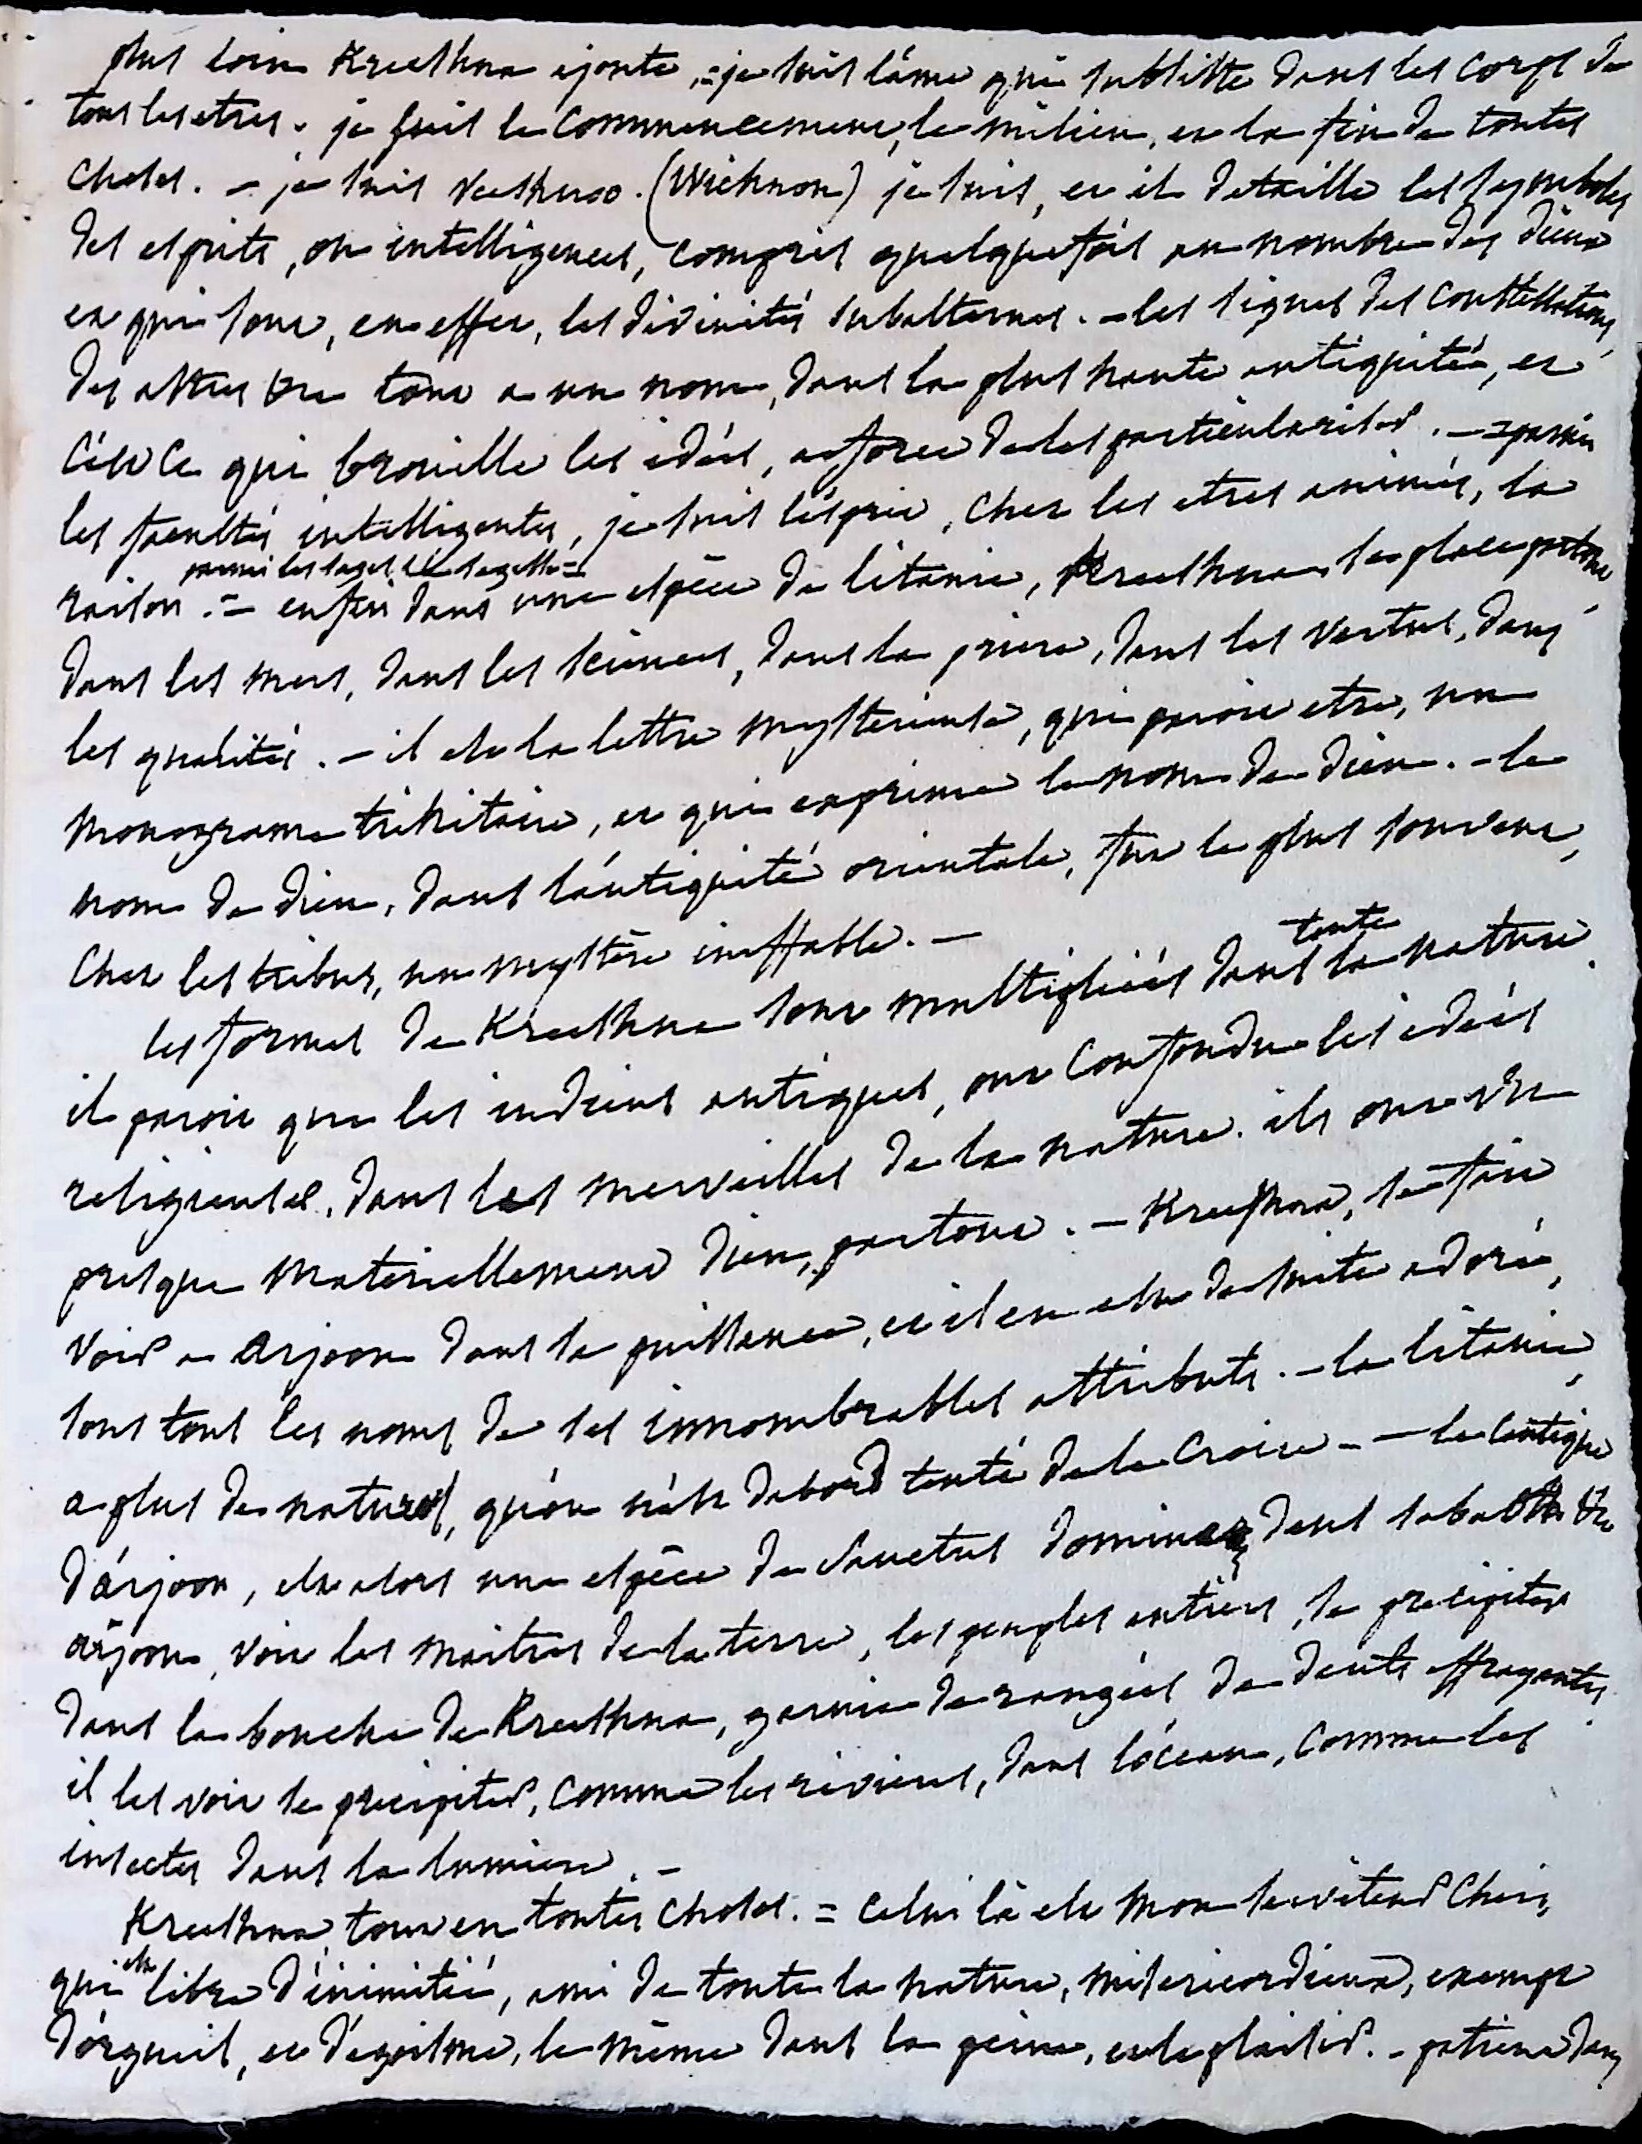 plus loin Kreeshna ajoute, = je suis l'âme qui subsiste dans les corps de
tous les etres. je suis le commencement, le milieu, et la fin de toutes
choses. – je suis Veeshnoo. (Wichnou) je suis, et il detaille les symboles
des esprits, ou intelligences, compris quelquefois au nombre des dieux
et qui sont, en effet, les divinités subalternes. – les signes des constellations,
des astres tout a un nom, dans la plus haute antiquité, et
c'est ce qui brouille les idées, a force de les particulariser. – = parmi
les facultés intelligentes, je suis l'ésprit, chez les etres animés, la
parmi les sages, la sagesse =
raison. = enfin dans une espèce de litanie, Kreeshna se place partout
dans les mers, dans les sciences, dans la priere, dans les vertus, dans
les qualités. – il est la lettre mysterieuse, qui paroit etre, un
monograme trinitaire, et qui exprime le nom de dieu. – le
nom de dieu, dans l'antiquité orientale, fut le plus souvent,
chez les tribus, un mystère ineffable. –
les formes de Kreeshna sont multipliées dans toute la nature
il paroit que les indiens antiques, ont confondu les idées
religieuses, dans les merveilles de la nature. ils ont vu
presque materiellement dieu, partout. – Kreeshna, se fait
voir a Arjoon dans sa puissance, et il en est de suite adoré,
sous tous les noms de ses innombrables attributs. – la litanie,
a plus de naturel, qu'on n'est dabord tenté de le croire – – le cantique
d'árjoon, est alors une espèce de Sanctus dominus, deus sabaoth
arjoon, voit les maitres de la terre, les peuples entiers, se precipiter
dans la bouche de Kreeshna, garnie de rangées de dents effrayantes.
il les voit se precipiter, comme les rivieres, dans l'océan, comme les
insectes dans la lumiere. –
Kreeshna, tout en toutes choses. = celui là est mon serviteur cheri,
qui est libre d'inimitié, ami de toute la nature, misericordieux, exempt
d'órgueil, et d'égoisme, le même dans la peine, et le plaisir. – patient dans